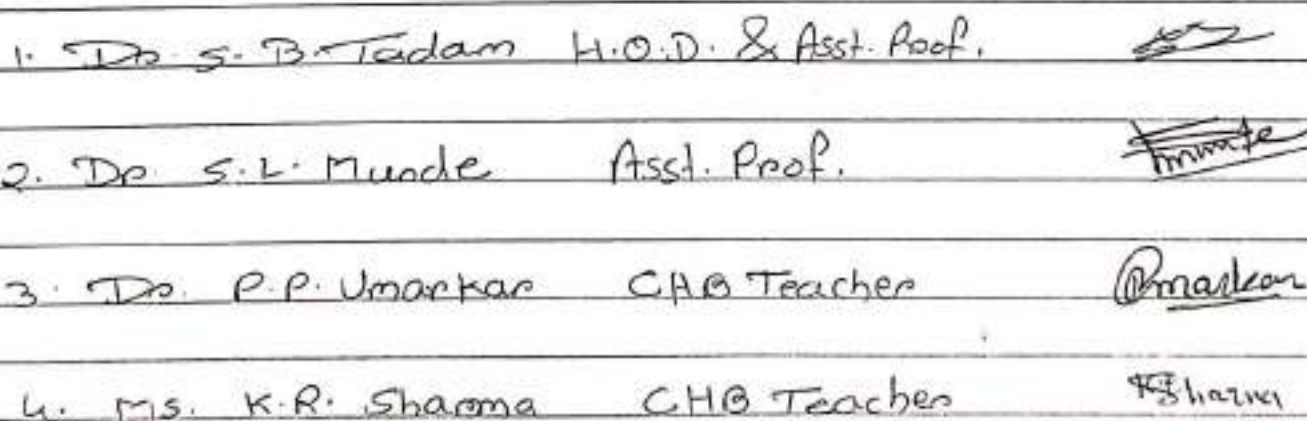 1. Dr. S. B. Tadam H.O.D. & Asst. Prof.
2. Dr. S. L. Munde Asst. Prof.
3. Dr. P. P. Umarkar CHB Teacher Umarkar
4. Ms. K. R. Sharma CHB Teacher KSharma